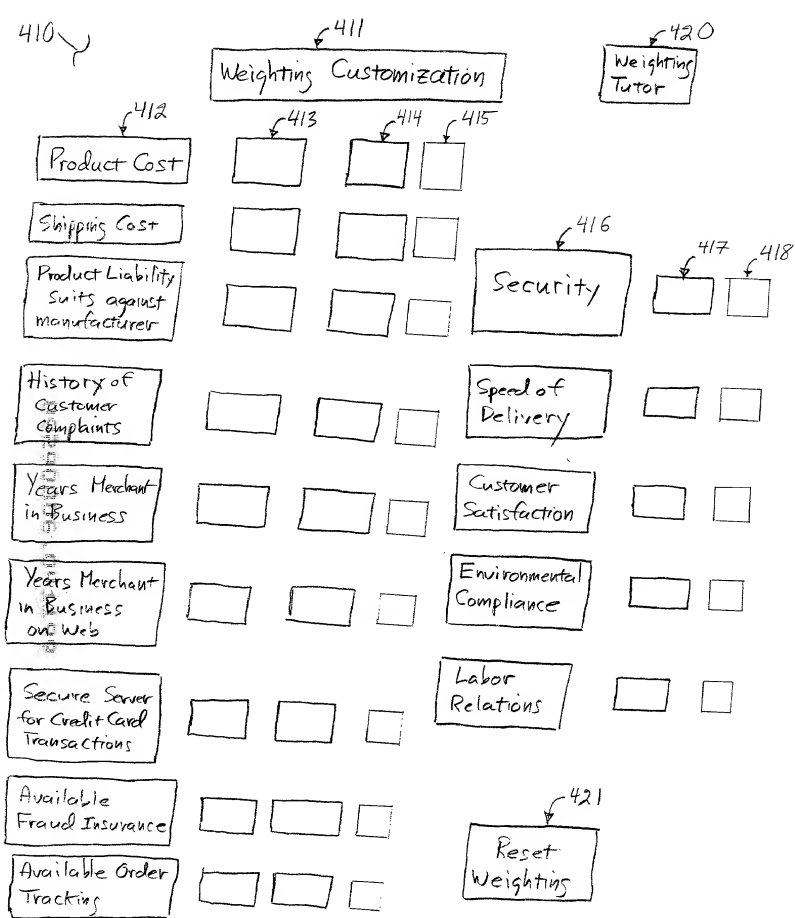 410
411
Weighting Customization
420
Weighting
Tutor
412
413
414
415
Product Cost
Shipping Cost
Product Liability
Suits against
manufacturer
History of
Customer
Complaints
Years Merchant
in Business
Years Merchant
in Business
on Web
Secure Server
for Credit Card
Transactions
Available
Fraud Insurance
Available Order
Tracking
416
Security
417
418
Speed of
Delivery
Customer
Satisfaction
Environmental
Compliance
Labor
Relations
421
Reset
Weighting